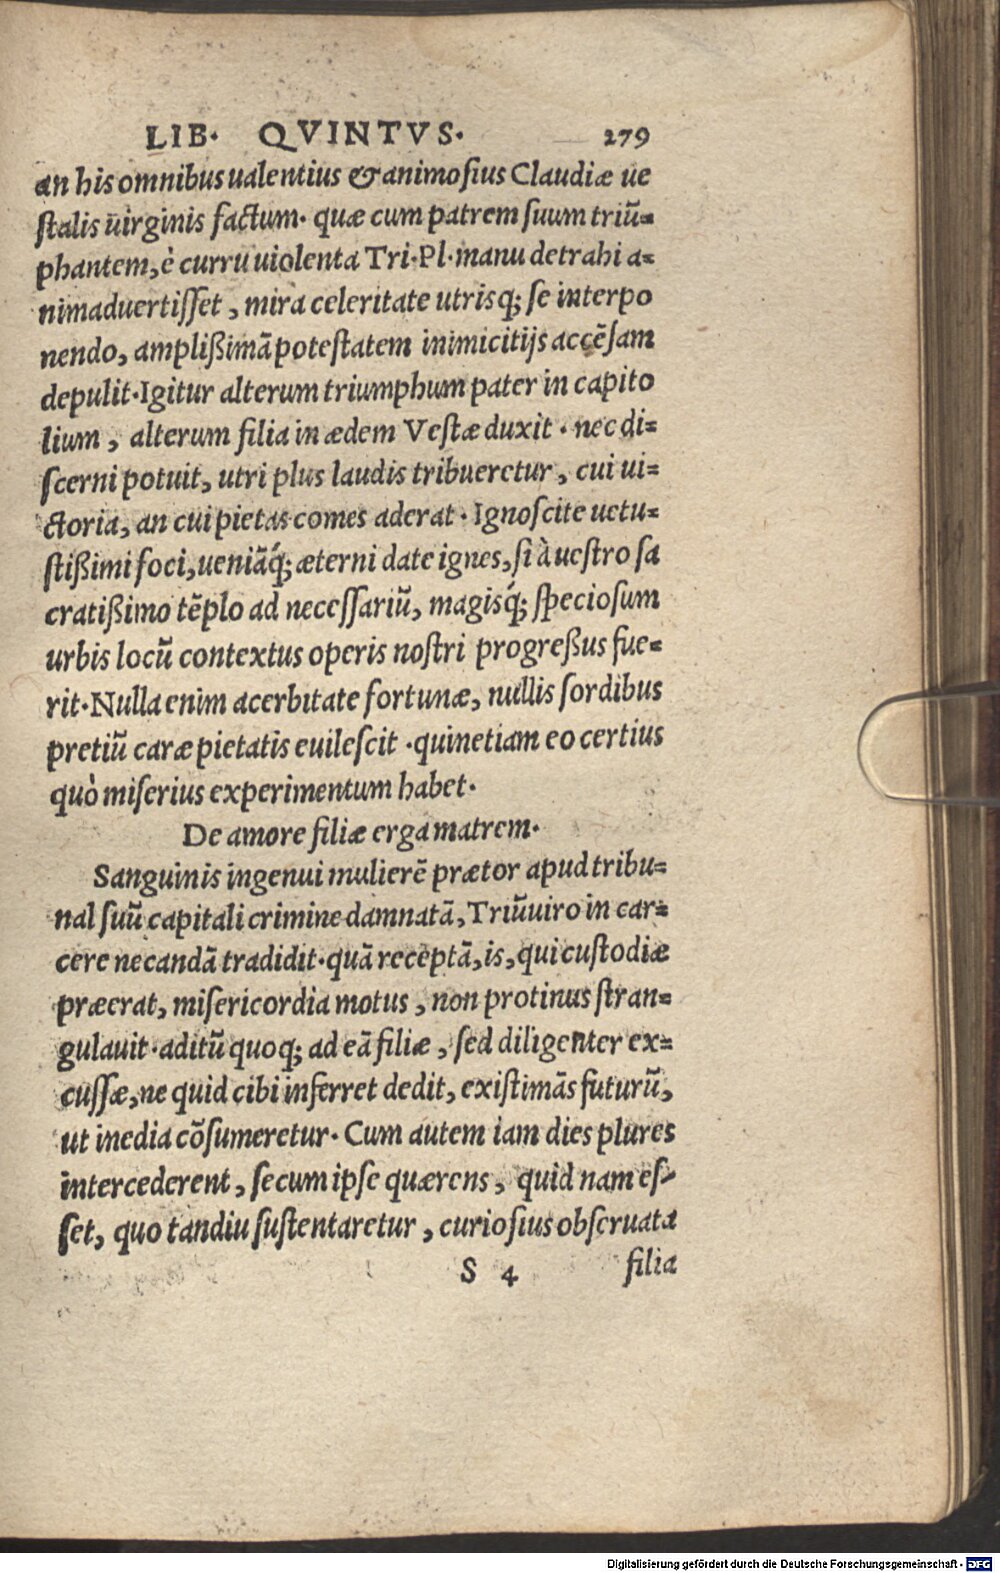 LIB. QVINTVS. 279
an his omnibus ualentius & animosius Claudiæ ue
stalis uirginis factum. quæ cum patrem suum triū-
phantem, è curru uiolenta Tri. Pl. manu detrahi a-
nimaduertisset, mira celeritate utrisq; se interpo
nendo, amplißimā potestatem inimicitijs accēsam
depulit. Igitur alterum triumphum pater in capito
lium, alterum filia in ædem Vestæ duxit. nec di-
scerni potuit, utri plus laudis tribueretur, cui ui-
ctoria, an cui pietas comes aderat. Ignoscite uetu-
stißimi foci, ueniāq́; æterni date ignes, si à uestro sa
cratißimo tēplo ad necessariū, magisq́; speciosum
urbis locū contextus operis nostri progreßus fue-
rit. Nulla enim acerbitate fortunæ, nullis sordibus
pretiū caræ pietatis euilescit. quinetiam eo certius
quò miserius experimentum habet.
De amore filiæ erga matrem.
Sanguinis ingenui mulierē prætor apud tribu-
nal suū capitali crimine damnatā, Triūuiro in car-
cere necandā tradidit. quā receptā, is, qui custodiæ
præerat, misericordia motus, non protinus stran-
gulauit. aditū quoq; ad eā filiæ, sed diligenter ex-
cussæ, ne quid cibi inferret dedit, existimās futurū,
ut inedia cōsumeretur. Cum autem iam dies plures
intercederent, secum ipse quærens, quid nam es-
set, quo tandiu sustentaretur, curiosius obseruata
S 4 filia
Digitalisierung gefördert durch die Deutsche Forschungsgemeinschaft - DFG